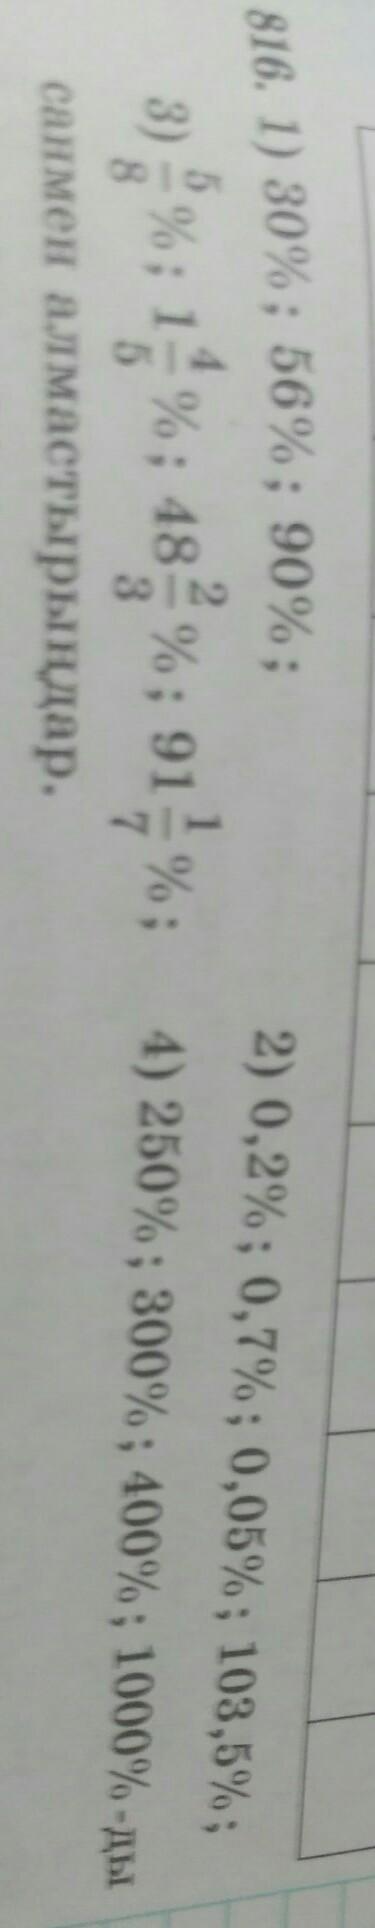 816. 1) 30%; 56%; 90%; 2) 0,2%; 0,7%; 0,05%; 103,5%;
3) 5/8 %; 1 4/5 %; 48 2/3 %; 91 1/7 %; 4) 250%; 300%; 400%; 1000%-ды
санмен алмастырыңдар.